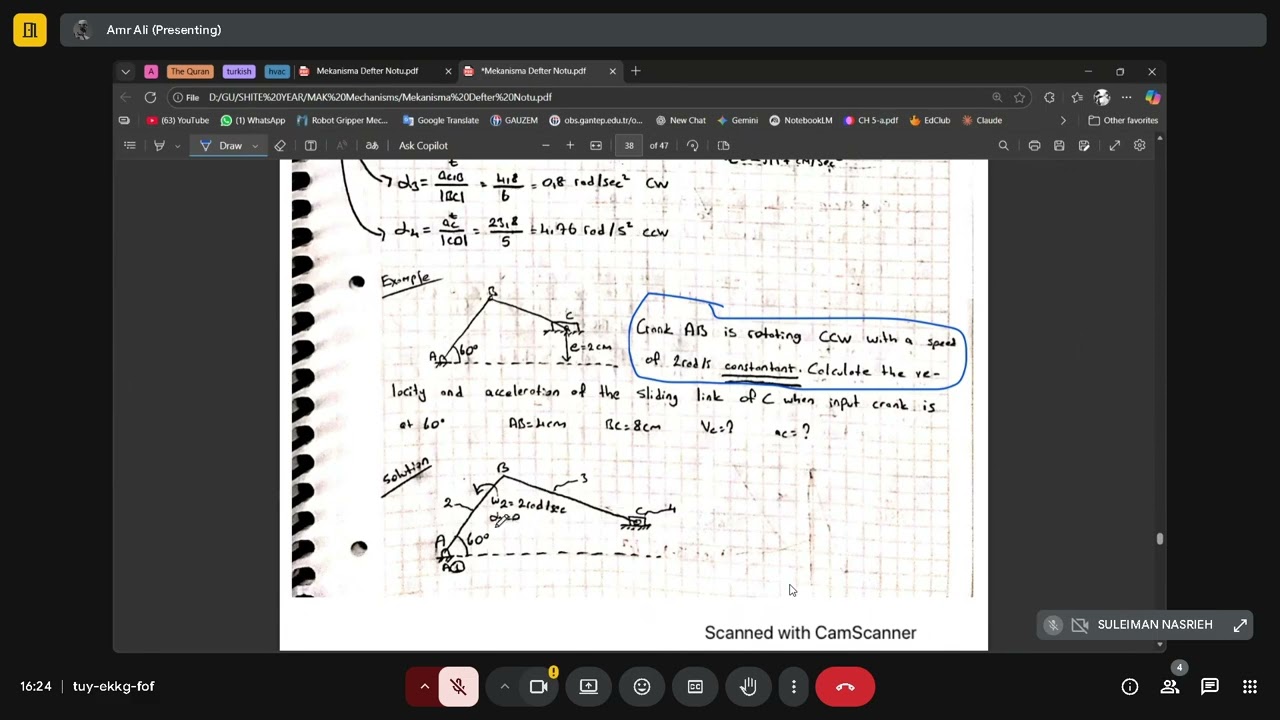 Amr Ali (Presenting)
A
The Quran
turkish
hvac
Mekanisma Defter Notu.pdf
*Mekanisma Defter Notu.pdf
File
D:/GU/SHITE%20YEAR/MAK%20Mechanisms/Mekanisma%20Defter%20Notu.pdf
(63) YouTube
(1) WhatsApp
Robot Gripper Mec...
Google Translate
GAUZEM
obs.gantep.edu.tr/o...
New Chat
Gemini
NotebookLM
CH 5-a.pdf
EdClub
Claude
Other favorites
Draw
Ask Copilot
38 of 47
α3 = a^t C/B / |BC| = 4,8 / 6 = 0,8 rad/sec² CW
α4 = a^t C / |CD| = 23,8 / 5 = 4.76 rad/s² ccw
Example
B
C
A 60°
e=2cm
Crank AB is rotating CCW with a speed
of 2rad/s constantant. Calculate the ve-
locity and acceleration of the sliding link of C when input crank is
at 60° AB=4cm BC=8cm Vc=? ac=?
Solution
B
3
2
ω2=2rad/sec
C 4
A 60°
Scanned with CamScanner
SULEIMAN NASRIEH
16:24 | tuy-ekkg-fof
4